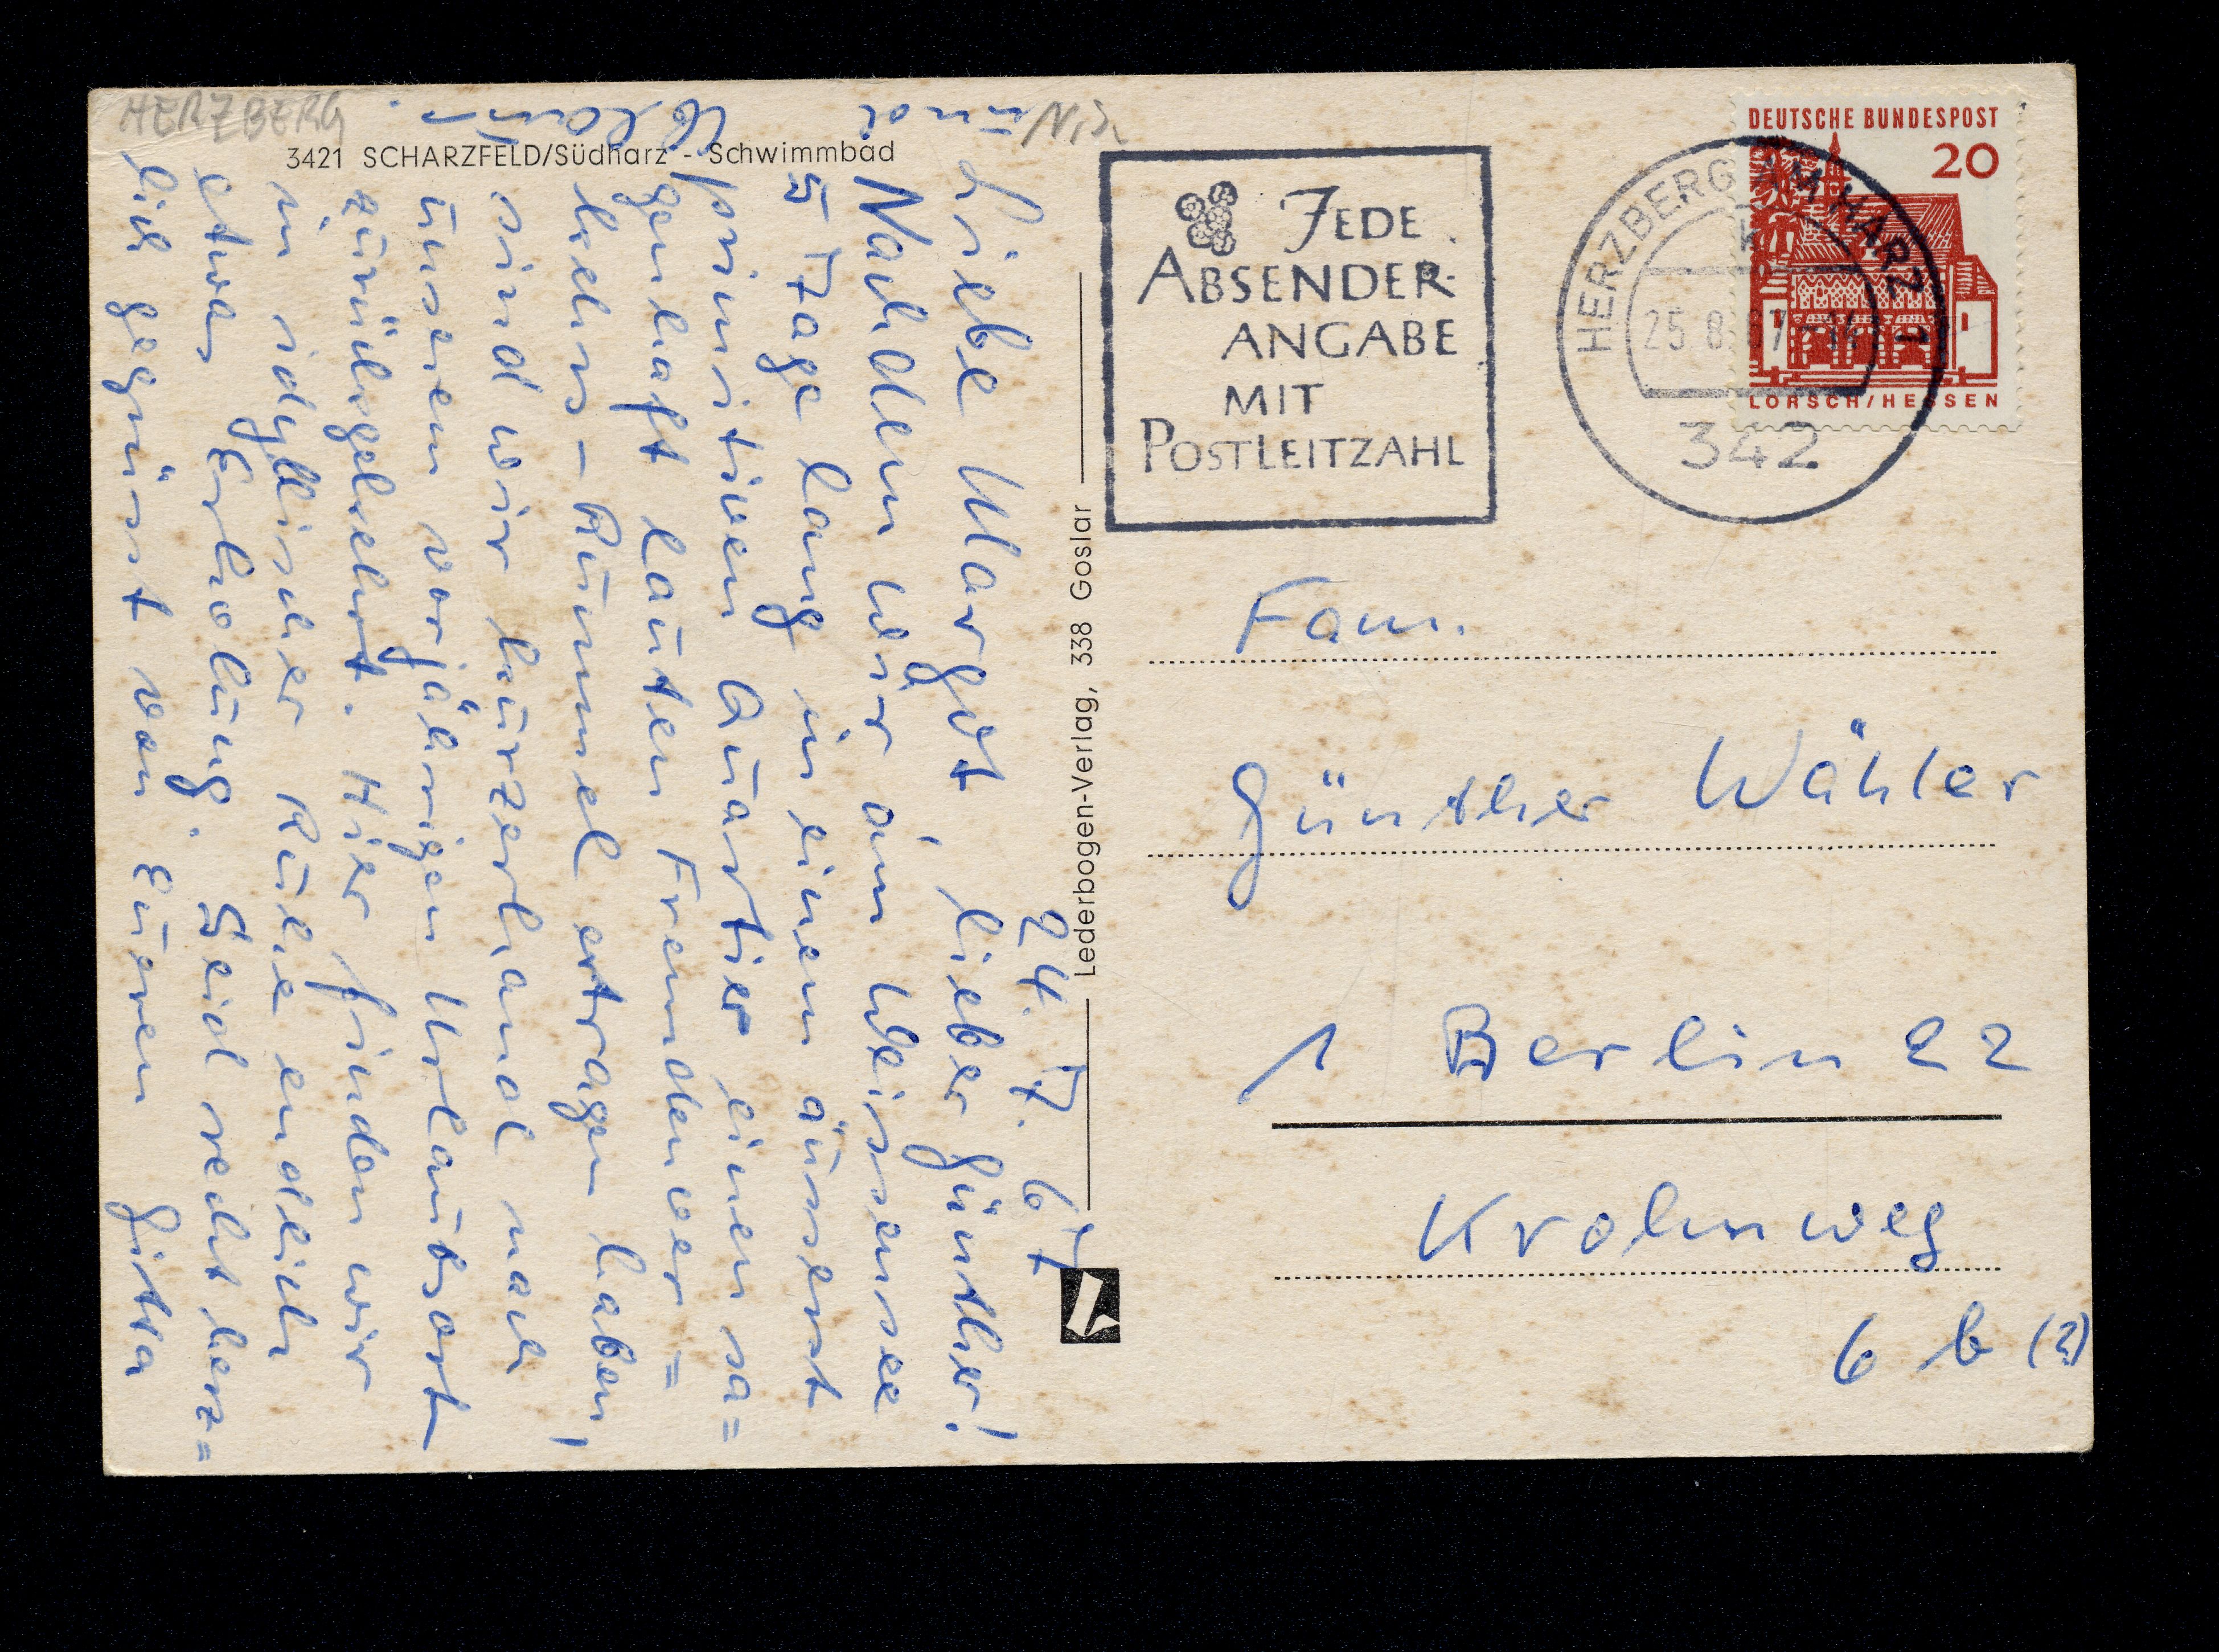 HERZBERG
3421 SCHARZFELD/Südharz - Schwimmbad
24. 7. 67
Liebe Margot, lieber Günther!
Nachdem wir am Weissensee
5 Tage lang in einem äusserst
primitiven Quartier einen sa=
genhaft lauten Fremdenver=
kehrs-Rummel ertragen haben,
sind wir kurzerhand nach
unseren vorjährigen Urlaubsort
zurückgekehrt. Hier finden wir
in idyllischer Ruhe endlich
etwas Erholung. Seid recht herz=
lich gegrüsst von Euren Gitta
und
Lederbogen-Verlag, 338 Goslar
JEDE
ABSENDER-
ANGABE
MIT
POSTLEITZAHL
HERZBERG AM HARZ 1
k
25.8.67
342
DEUTSCHE BUNDESPOST
20
LORSCH/HESSEN
Fam.
Günther Wähler
1 Berlin 22
Krohnweg
6 b (?)